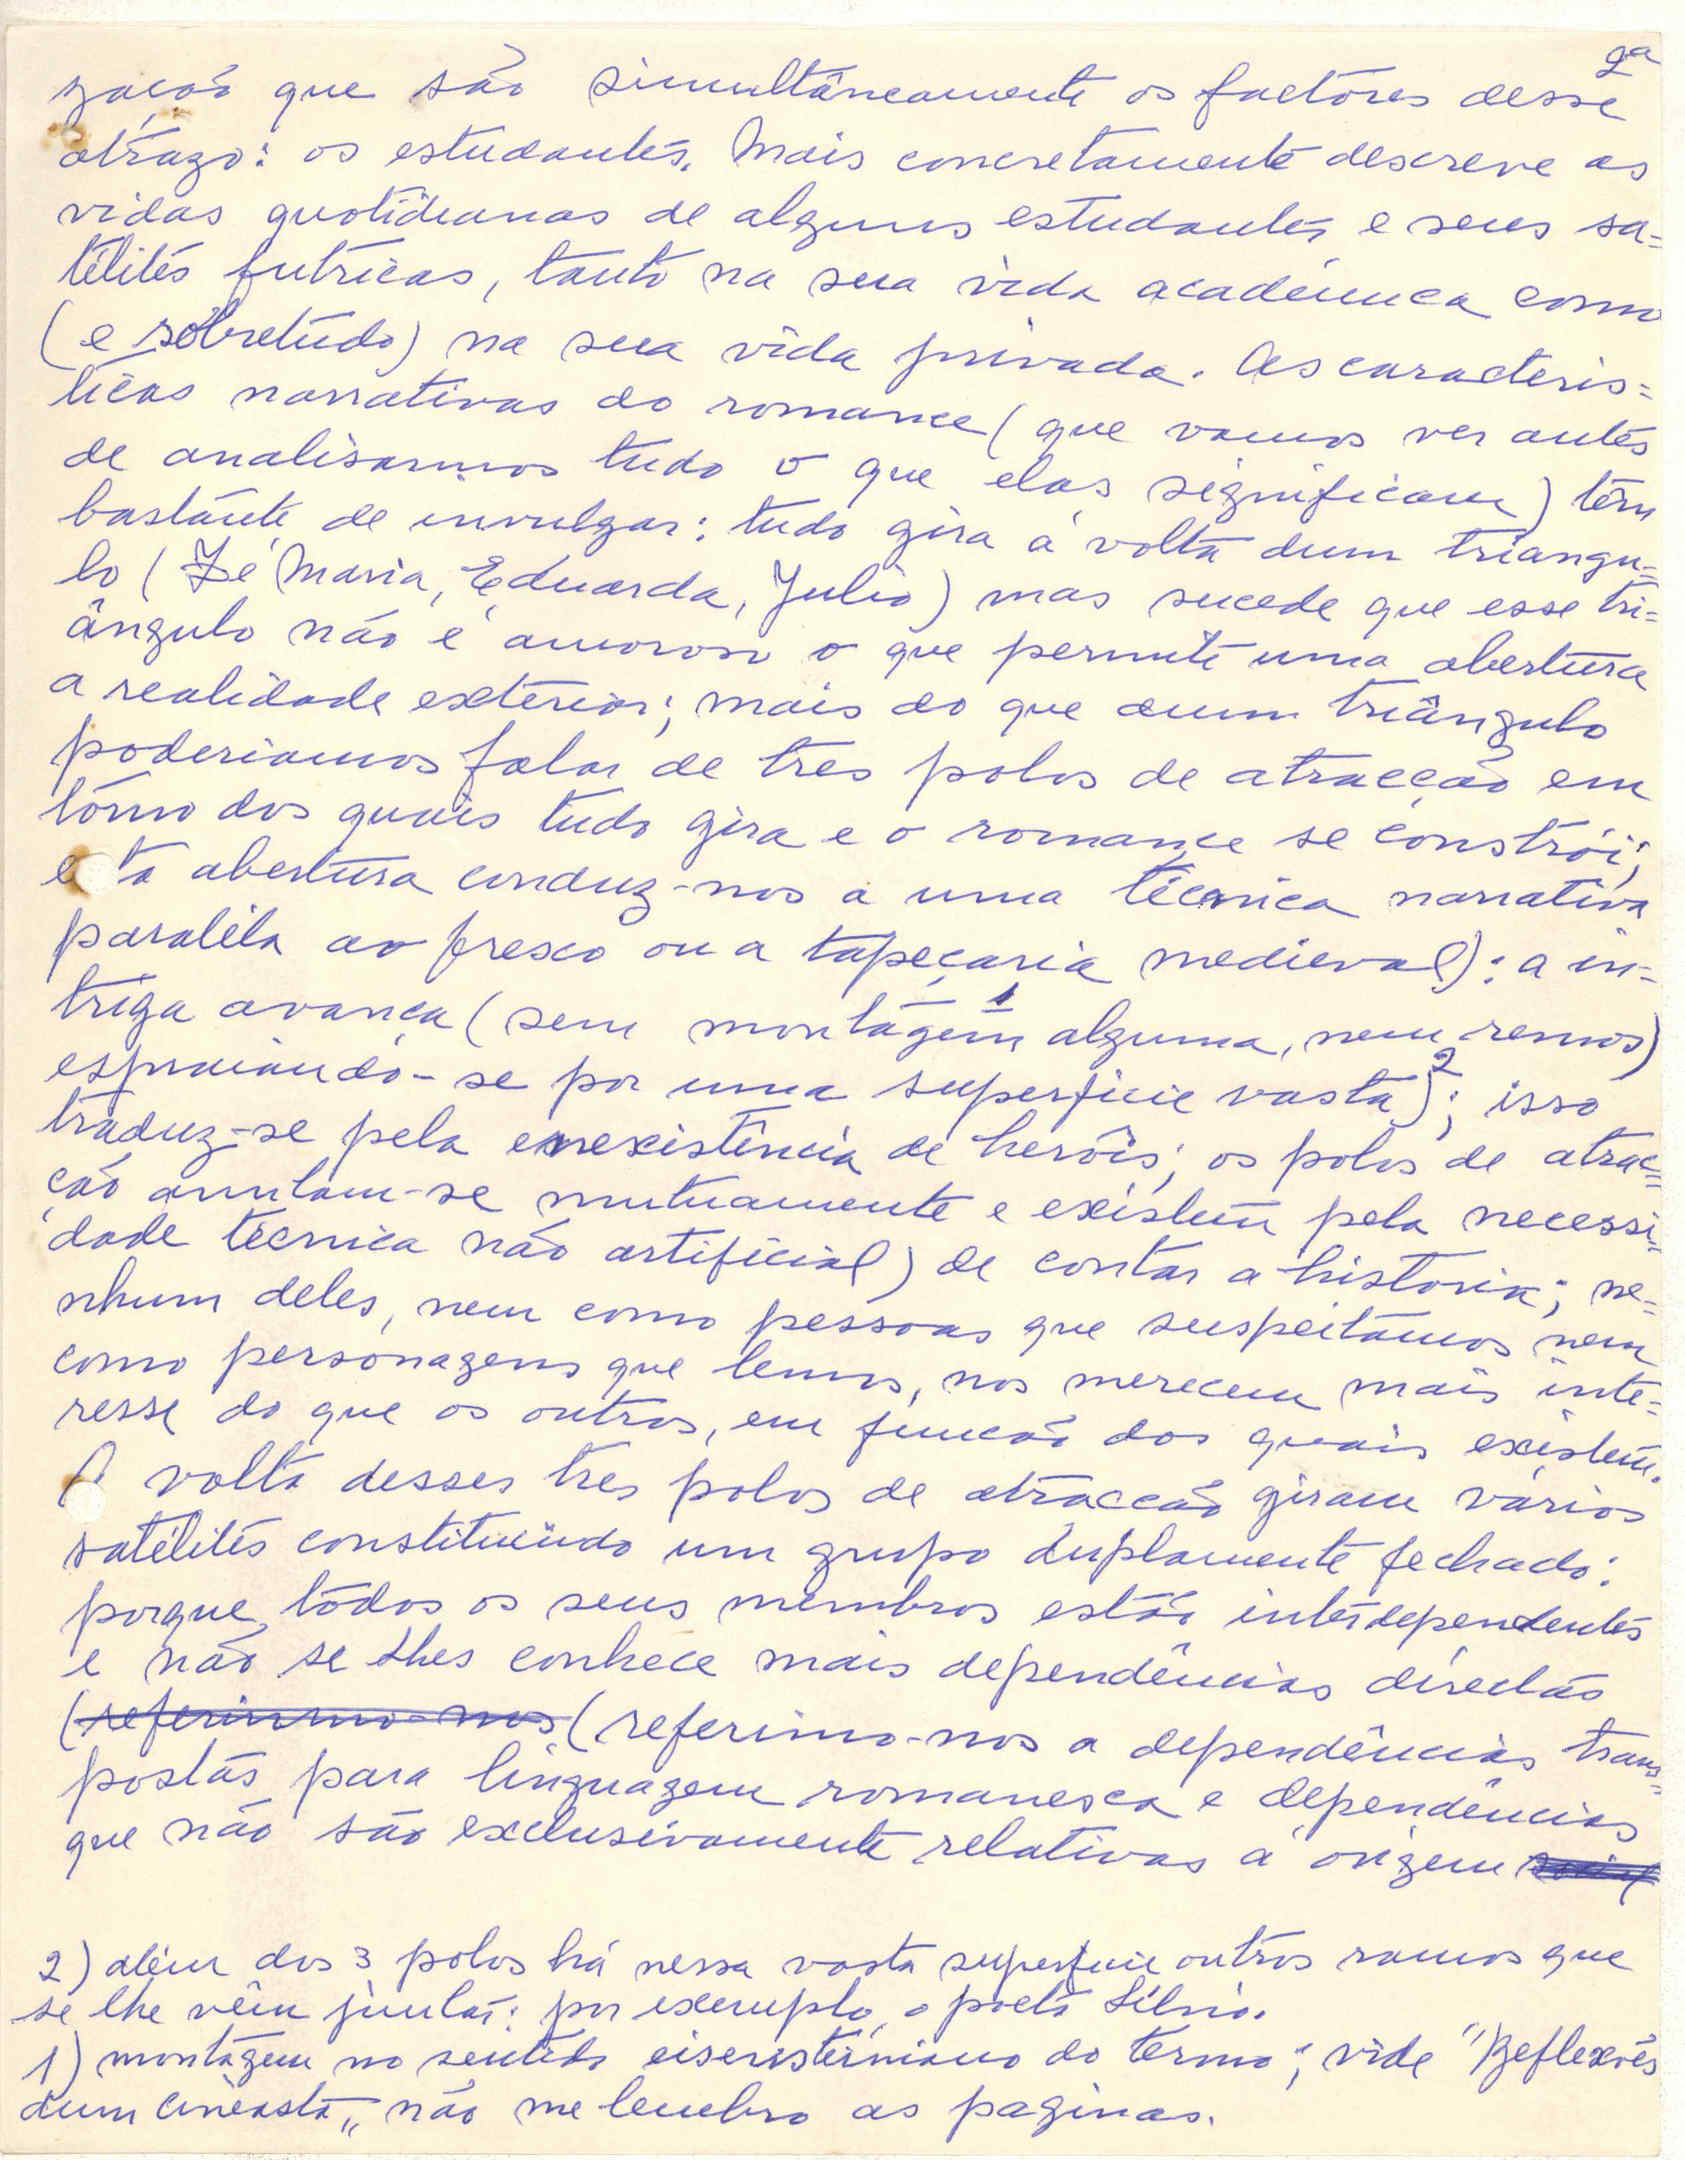 2ª
zação que são simultâneamente os factores desse
atrazo: os estudantes. Mais concretamente descreve as
vidas quotidianas de alguns estudantes e seus sa=
télites futricas, tanto na sua vida académica como
(e sôbretudo) na sua vida privada. As caracteris=
ticas narrativas do romance (que vamos ver antes
de analisarmos tudo o que elas significam) têm
bastante de invulgar: tudo gira á volta dum triangu=
lo (Zé Maria, Eduarda, Julio) mas sucede que esse tri=
ângulo não é amoroso o que permite uma abertura
a realidade exterior; mais do que dum triângulo
poderiamos falar de tres polos de atracção em
tôrno dos quais tudo gira e o romance se constrói;
esta abertura conduz-nos a uma técnica narrativa
paralela ao fresco ou a tapeçaria medieval): a in-
triga avança (sem montagem 1 alguma, nem remos)
espraiando-se por uma superficie vasta) 2; isso
traduz-se pela inexistência de heróis; os polos de atrac=
ção anulam-se mutuamente e existem pela necessi=
dade técnica não artificial) de contar a historia; ne=
nhum deles, nem como pessoas que suspeitamos nem
como personagens que lemos, nos merecem mais inte=
resse do que os outros, em função dos quais existem.
A volta desses tres polos de atracção giram vários
satélites constituindo um grupo duplamente fechado:
porque todos os seus membros estão interdependentes
e não se lhes conhece mais dependências directas
(referimmo-nos (referimo-nos a dependências trans=
postas para linguagem romanesca e dependências
que não são exclusivamente relativas á origem social
2) além dos 3 polos há nessa vasta superficie outros ramos que
se lhe vêm juntar: por exemplo, o poeta Silvio.
1) montagem no sentido eisensteiniano do termo; vide "Reflexões
dum Cineasta", não me lembro as paginas.